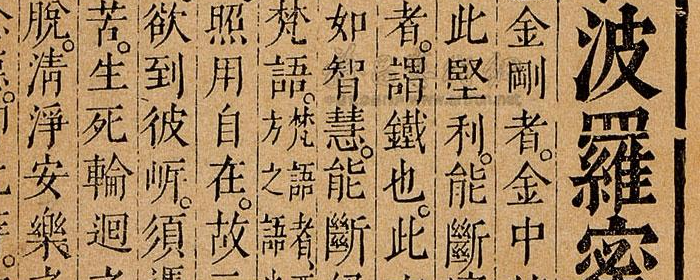 波羅密
金剛者。金中
此堅利。能斷
者。謂鐵也。此
如智慧。能斷
梵語。梵語者
方之語
照用自在。故
欲到彼岍。須
苦。生死輪迴
脫。清淨安樂